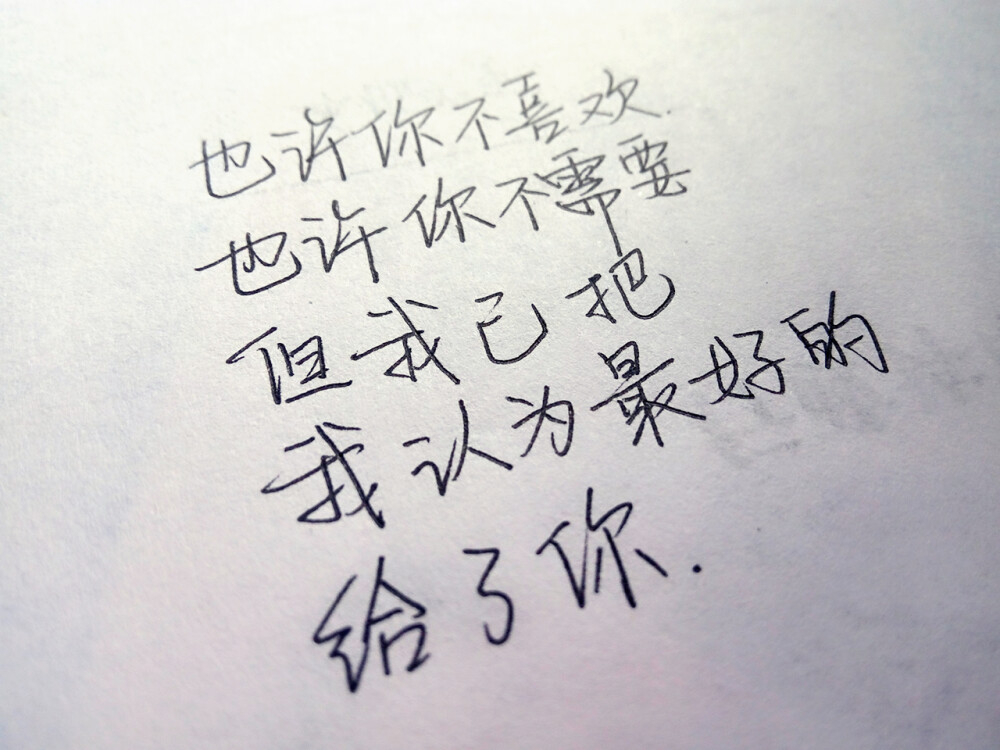 也许你不喜欢.
也许你不需要
但我已把
我认为最好的
给了你.